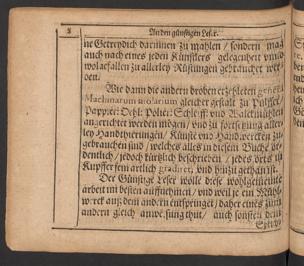 2 An den günstigen Leser.
ne Getreydich darinnen zu mahlen / sondern mag
auch nach eines jeden Künstlers gelegenheit und
wolgefallen zu allerley Rüstungen gebrauchet wer-
den.
Wie dann die andern droben erzehleten
Machinarum gleicher gestalt zu Pulffer/
Pappier: Oehl: Polier: Schleiff: und Walckmühlen
angerichtet werden mögen / und zu fortsetzung aller-
ley Handthierungen / Künste und Handwercken zu-
gebrauchen sind / welches alles in diesem Buche or-
dentlich / jedoch kürtzlich beschrieben / jedes orts in
Kupffer fein artlich gradiret / und hinzu gethan ist.
Der Günstige Leser wolle diese wohlgemeinte
arbeit im besten auffnehmen / und weil je ein Mühl-
werck auß dem andern entspringet / daher eines zum
andern gleich anweisung thut / auch sonsten